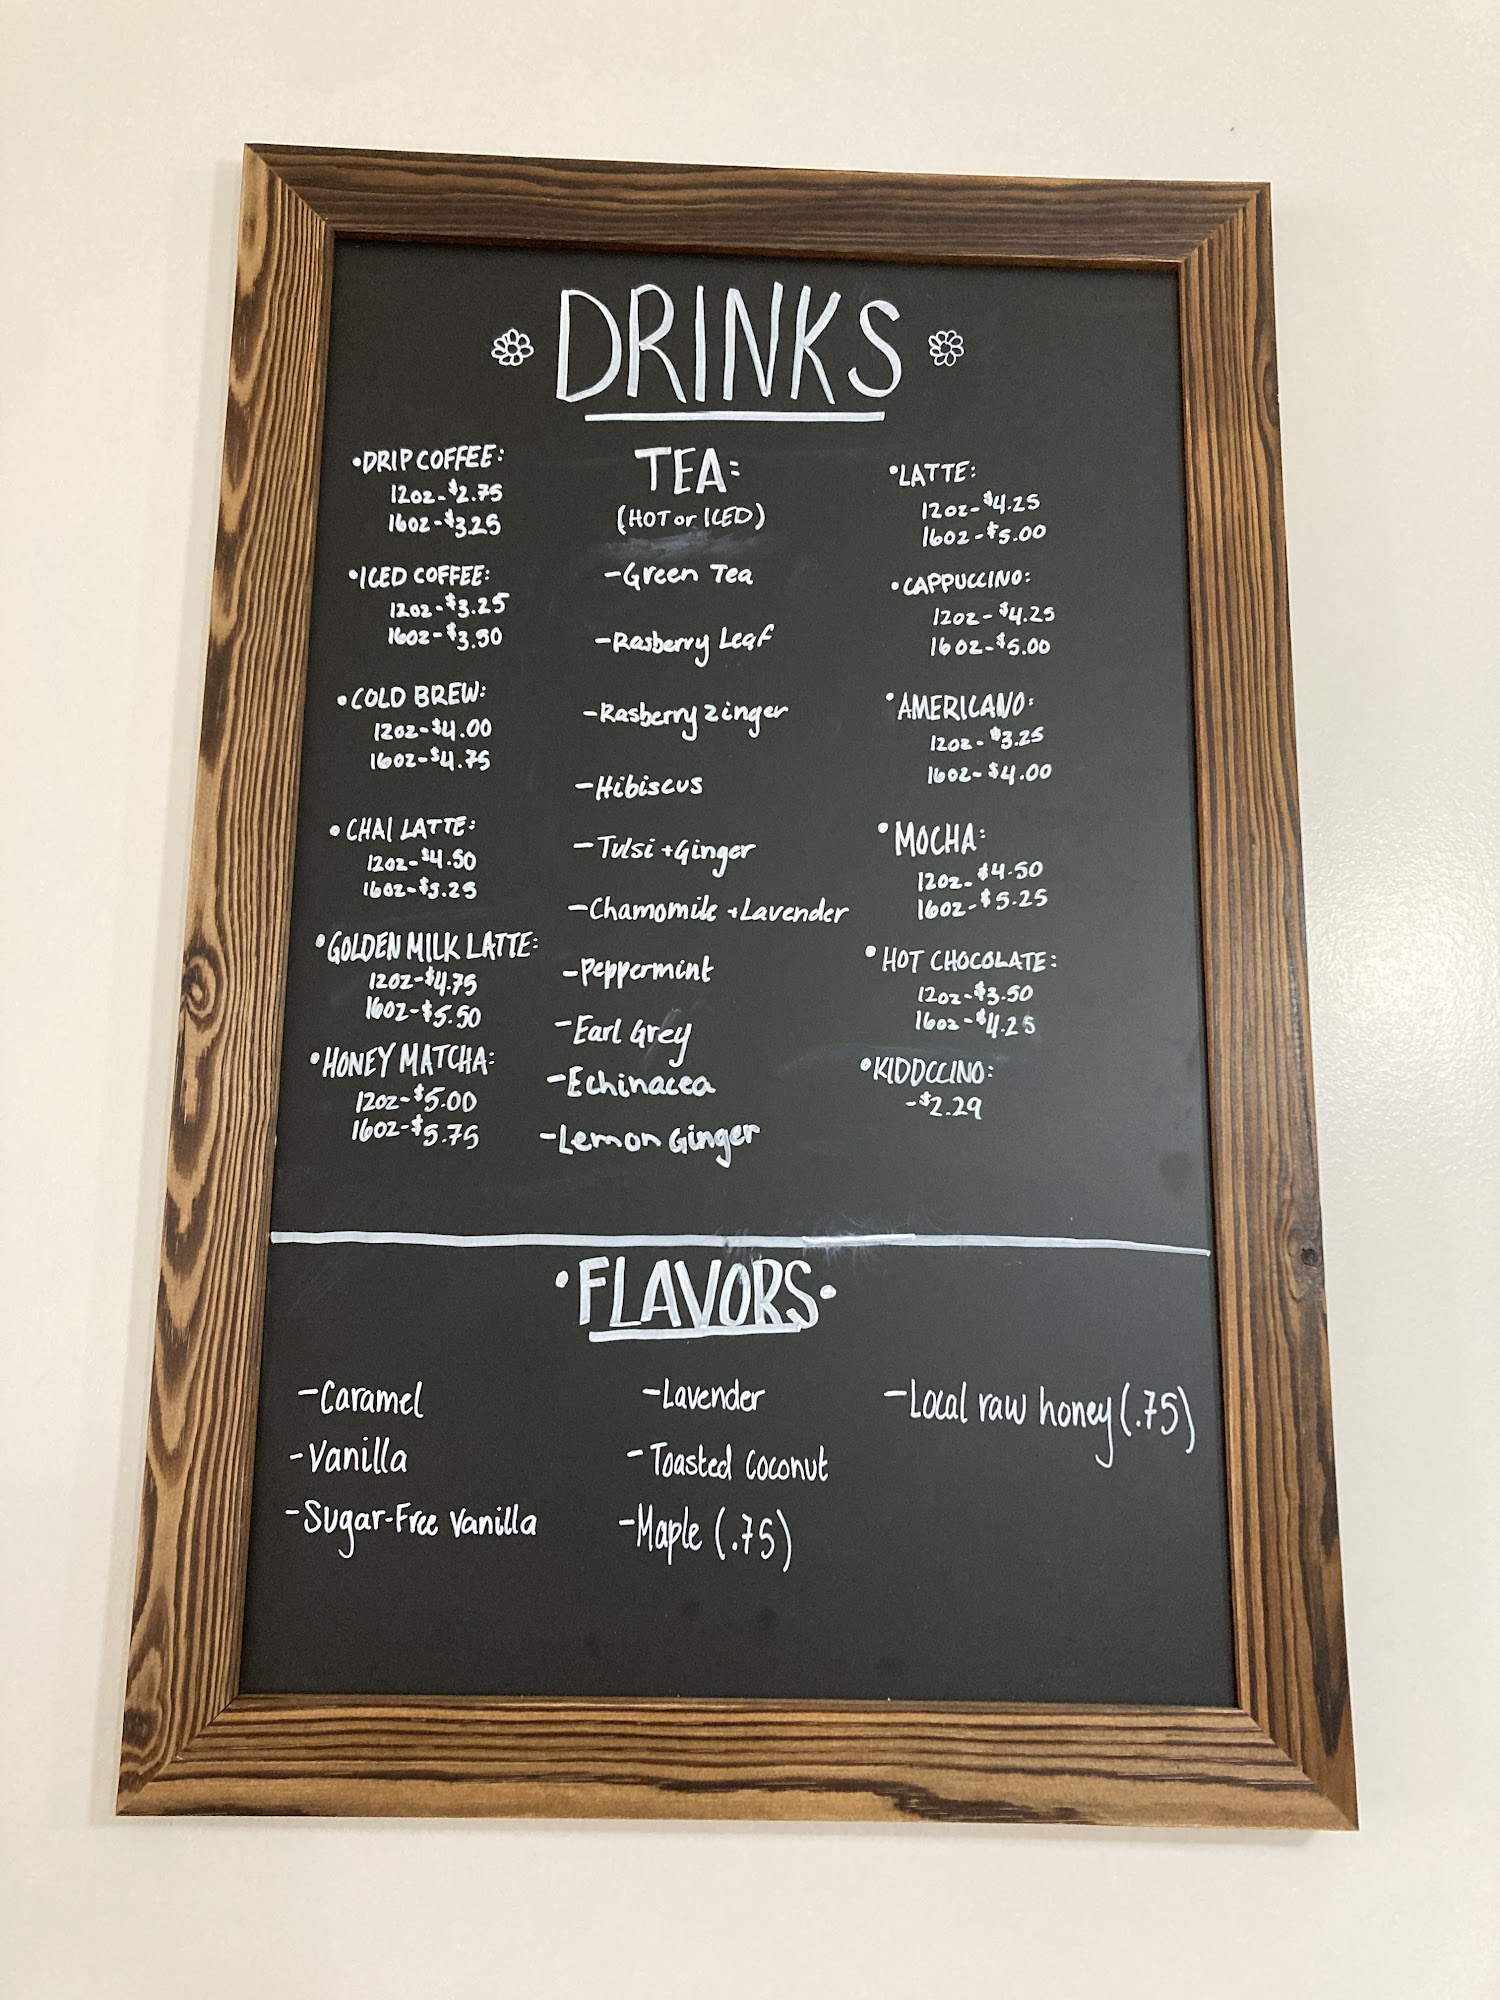 DRINKS
•DRIP COFFEE:
12oz-$2.75
16oz-$3.25
•ICED COFFEE:
12oz-$3.25
16oz-$3.50
•COLD BREW:
12oz-$4.00
16oz-$4.75
•CHAI LATTE:
12oz-$4.50
16oz-$5.25
•GOLDEN MILK LATTE:
12oz-$4.75
16oz-$5.50
•HONEY MATCHA:
12oz-$5.00
16oz-$5.75
TEA:
(HOT or ICED)
-Green Tea
-Rasberry Leaf
-Rasberry Zinger
-Hibiscus
-Tulsi +Ginger
-Chamomile +Lavender
-Peppermint
-Earl Grey
-Echinacea
-Lemon Ginger
•LATTE:
12oz-$4.25
16oz-$5.00
•CAPPUCCINO:
12oz-$4.25
16oz-$5.00
•AMERICANO:
12oz-$3.25
16oz-$4.00
•MOCHA:
12oz-$4.50
16oz-$5.25
•HOT CHOCOLATE:
12oz-$3.50
16oz-$4.25
•KIDDCCINO:
-$2.29
•FLAVORS•
-Caramel
-Vanilla
-Sugar-Free Vanilla
-Lavender
-Toasted Coconut
-Maple (.75)
-Local raw honey (.75)